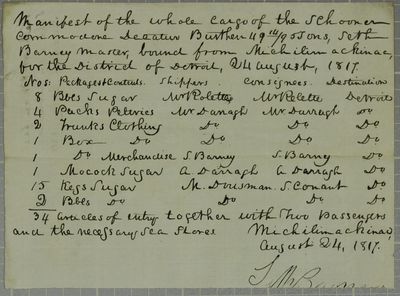 Manifest of the whole cargo of the Schooner
Commodore Decatur Burthen 49 Tons, Seth
Barney master, bound from Michilimackinac,
for the District of Detroit, 24 august, 1817.
Nos: Packages & Contents. Shippers. Consignees. Destination
8 Bbls Sugar Mr Rolette Mr Rolette Detroit
4 Packs Peltries Mr Darragh Mr Darragh do
2 Trunks Clothing Do Do Do
1 Box Do Do Do Do
1 Do Merchandise S Barney S. Barney Do
1 Mocock Sugar A Darragh A Darragh Do
15 Kegs Sugar M. Dousman. S. Conant Do
2 Bbls Do Do Do Do
34 articles of entry together with Two Passengers
and the necessary Sea Stores Michilimackinac,
august 24, 1817.